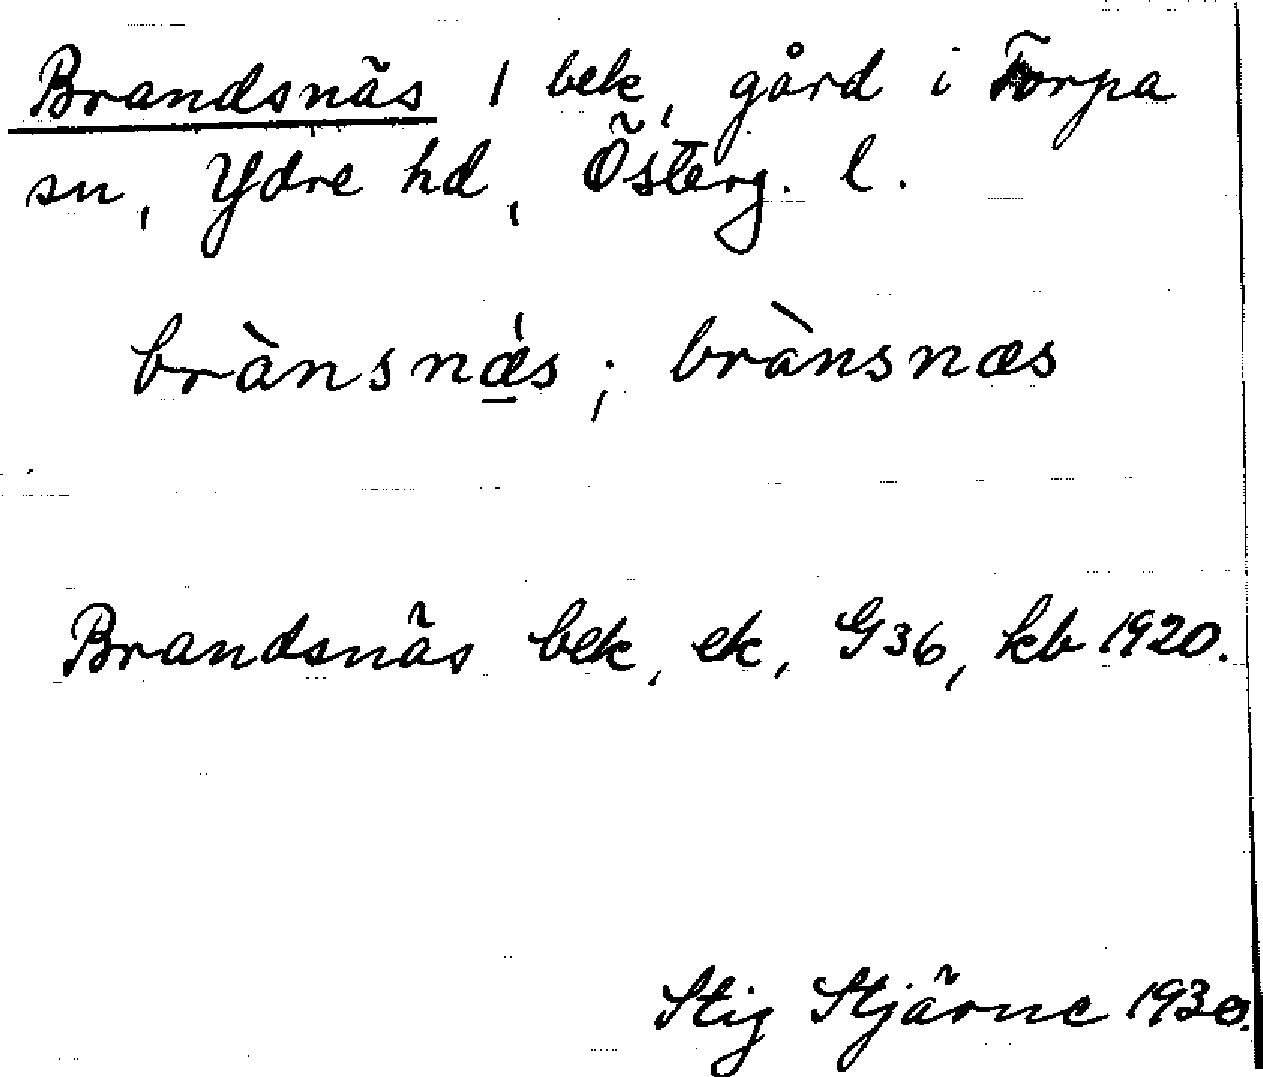 Brandsnäs 1 bek, gård i Torpa
sn, Ydre hd, Österg. l.
brànsnǽs; brànsnæs
Brandsnäs bek, ek, G36, kb 1920.
Stig Stjärne 1930.